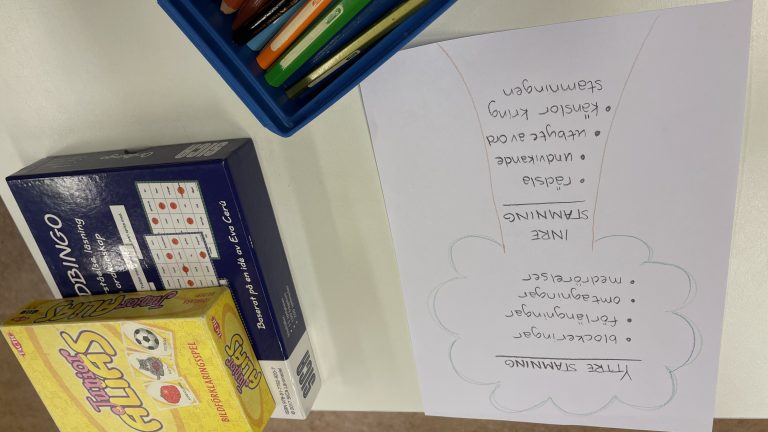 YTTRE STAMNING
• blockeringar
• förlängningar
• omtagningar
• medrörelser
INRE
STAMNING
• rädsla
• undvikande
• utbyte av ord
• känslor kring
stamningen
Ordbingo
DBINGO
Baserat på en idé av Eva Cerú
Junior
ALIAS
BILDFÖRKLARINGSSPEL
Junior
ALIAS
Junior
ALIAS
TACTIC